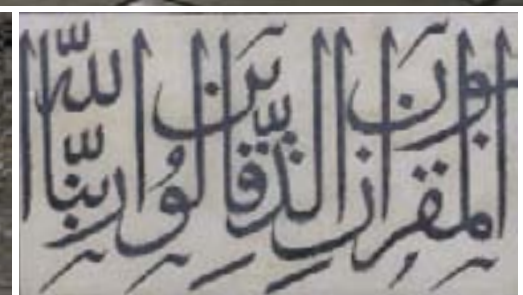 المقربون ان الذين قالوا ربنا الله